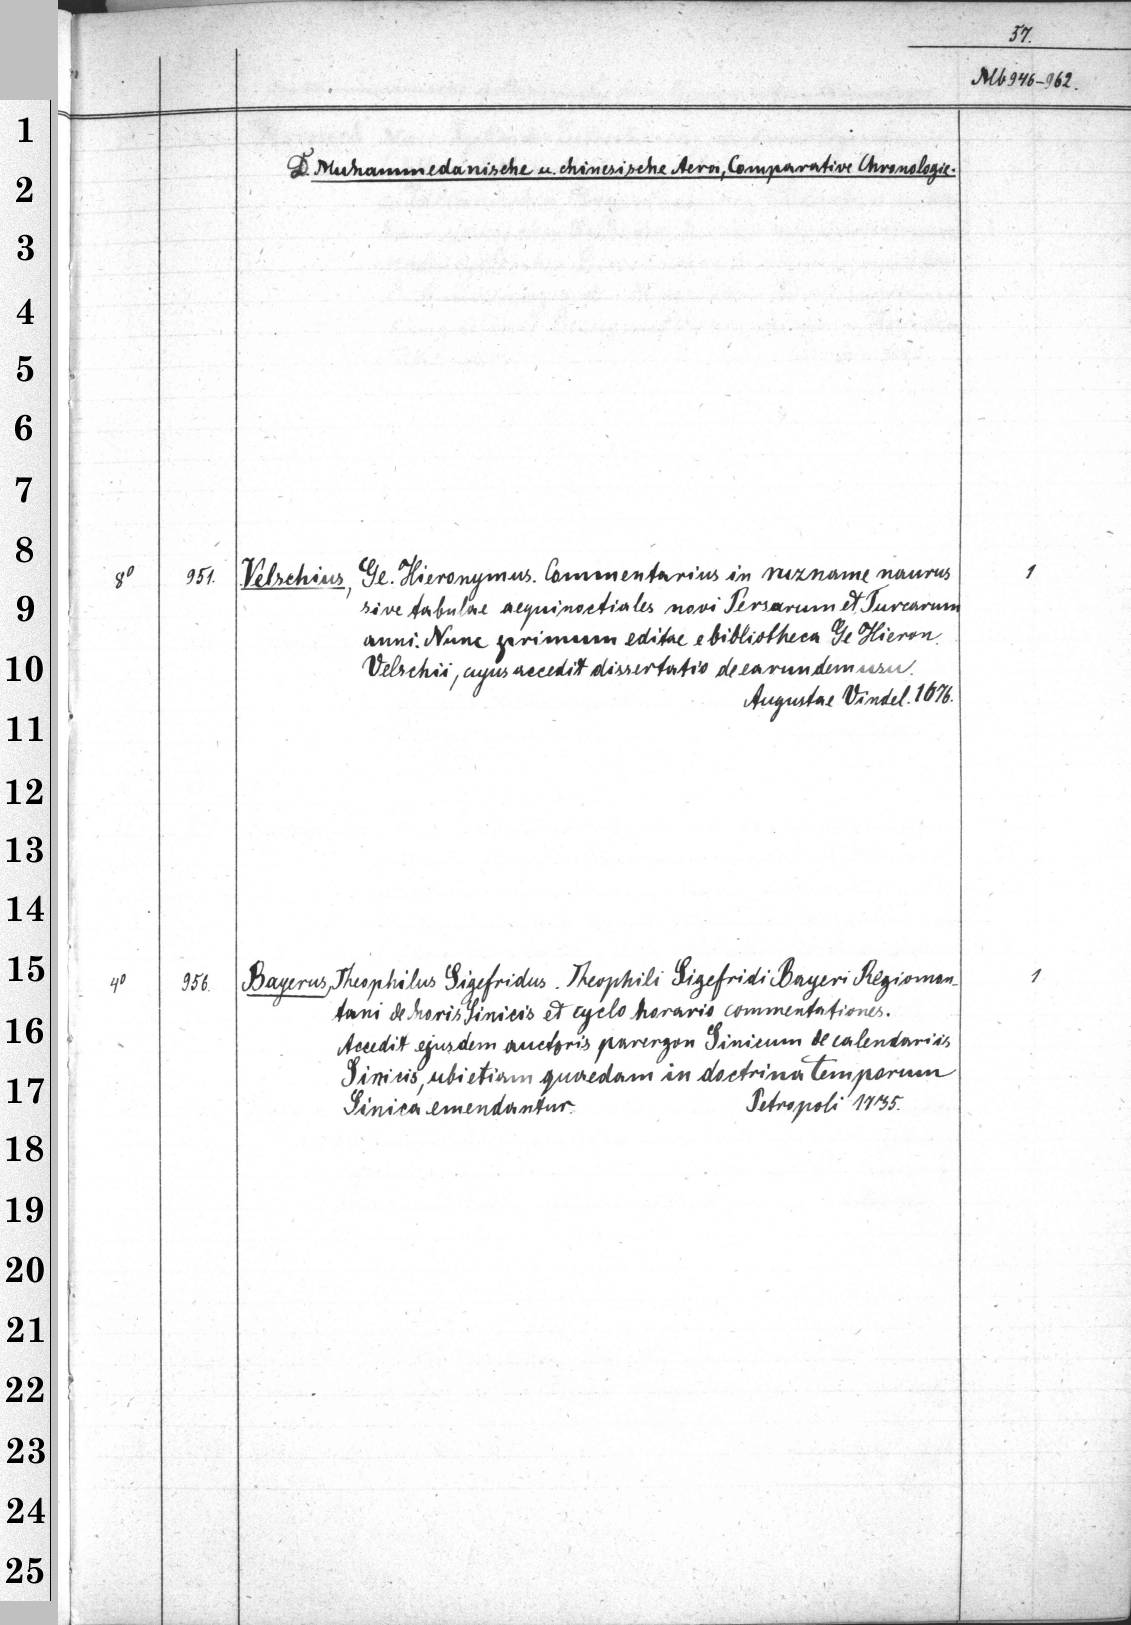 57.
Mb 946-962.
1
2
3
4
5
6
7
8
9
10
11
12
13
14
15
16
17
18
19
20
21
22
23
24
25
D. Muhammedanische u. chinesische Aera, Comparative Chronologie.
8° 951. Velschius, Ge. Hieronymus. Commentarius in ruzname naurus 1
sive tabulae aequinoctiales novi Persarum et Turcarum
anni. Nunc primum editae e bibliotheca Ge Hieron.
Velschii, cujus accedit dissertatio de earundem usu.
Augustae Vindel. 1676.
4° 956. Bayerus, Theophilus Sigefridus. Theophili Sigefridi Bayeri Regiomon- 1
tani de horis Sinicis et cyclo horario commentationes.
Accedit ejusdem auctoris parergon Sinicum de calendariis
Sinicis, ubi etiam quaedam in doctrina temporum
Sinica emendantur. Petropoli 1735.